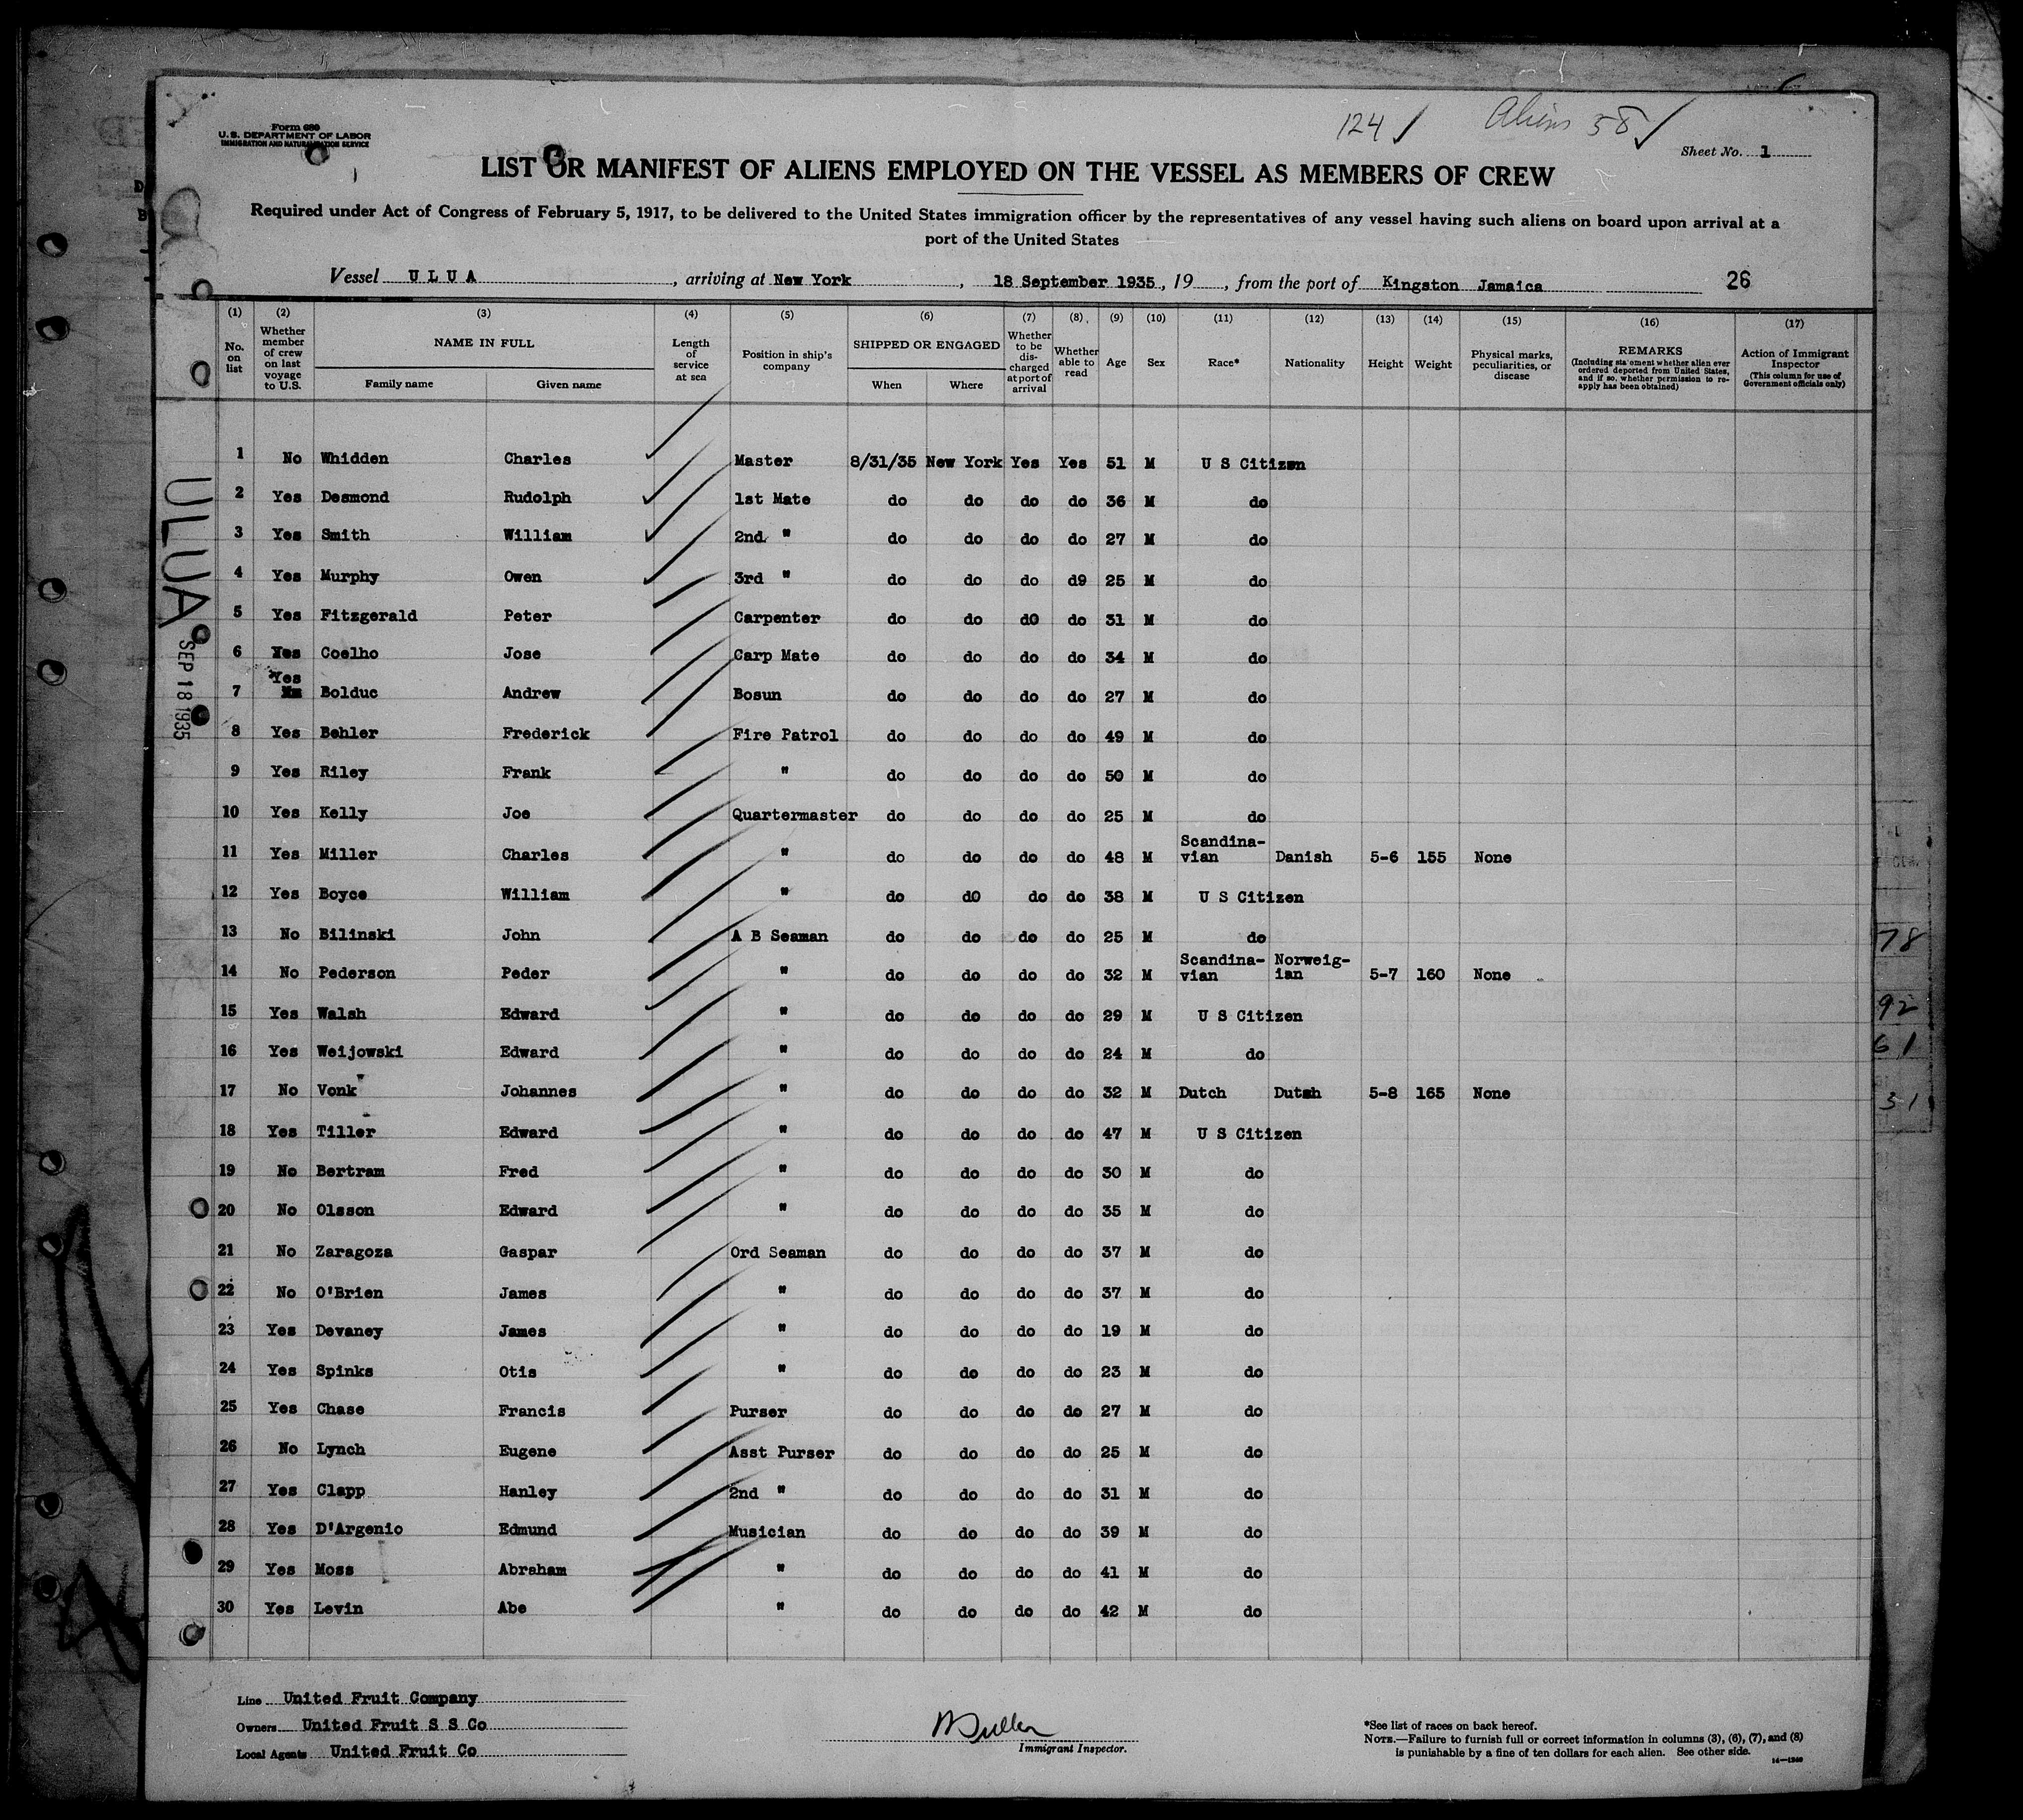 124 ✓ Aliens 58 ✓
Form 680
U.S. DEPARTMENT OF LABOR
IMMIGRATION AND NATURALIZATION SERVICE
Sheet No. 1
LIST OR MANIFEST OF ALIENS EMPLOYED ON THE VESSEL AS MEMBERS OF CREW
Required under Act of Congress of February 5, 1917, to be delivered to the United States immigration officer by the representatives of any vessel having such aliens on board upon arrival at a
port of the United States
Vessel U L U A, arriving at New York, 18 September 1935, 19, from the port of Kingston Jamaica 26
(1) No. on list
(2) Whether member of crew on last voyage to U.S.
(3) NAME IN FULL Family name Given name
(4) Length of service at sea
(5) Position in ship's company
(6) SHIPPED OR ENGAGED When Where
(7) Whether to be discharged at port of arrival
(8) Whether able to read
(9) Age
(10) Sex
(11) Race*
(12) Nationality
(13) Height
(14) Weight
(15) Physical marks, peculiarities, or disease
(16) REMARKS (Including statement whether alien ever ordered deported from United States, and if so, whether permission to reapply has been obtained)
(17) Action of Immigrant Inspector (This column for use of Government officials only)
1 No Whidden Charles Master 8/31/35 New York Yes Yes 51 M U S Citizen
2 Yes Desmond Rudolph 1st Mate do do do do 36 M do
3 Yes Smith William 2nd " do do do do 27 M do
4 Yes Murphy Owen 3rd " do do do d9 25 M do
5 Yes Fitzgerald Peter Carpenter do do dO do 31 M do
6 Yes Coelho Jose Carp Mate do do do do 34 M do
7 Yes Bolduc Andrew Bosun do do do do 27 M do
8 Yes Behler Frederick Fire Patrol do do do do 49 M do
9 Yes Riley Frank " do do do do 50 M do
10 Yes Kelly Joe Quartermaster do do do do 25 M do
11 Yes Miller Charles " do do do do 48 M Scandina-vian Danish 5-6 155 None
12 Yes Boyce William " do dO do do 38 M U S Citizen
13 No Bilinski John A B Seaman do do do do 25 M do
14 No Pederson Peder " do do do do 32 M Scandina-vian Norweig-ian 5-7 160 None
15 Yes Walsh Edward " do do do do 29 M U S Citizen
16 Yes Weijowski Edward " do do do do 24 M do
17 No Vonk Johannes " do do do do 32 M Dutch Dutch 5-8 165 None
18 Yes Tiller Edward " do do do do 47 M U S Citizen
19 No Bertram Fred " do do do do 30 M do
20 No Olsson Edward " do do do do 35 M do
21 No Zaragoza Gaspar Ord Seaman do do do do 37 M do
22 No O'Brien James " do do do do 37 M do
23 Yes Devaney James " do do do do 19 M do
24 Yes Spinks Otis " do do do do 23 M do
25 Yes Chase Francis Purser do do do do 27 M do
26 No Lynch Eugene Asst Purser do do do do 25 M do
27 Yes Clapp Hanley 2nd " do do do do 31 M do
28 Yes D'Argenio Edmund Musician do do do do 39 M do
29 Yes Moss Abraham " do do do do 41 M do
30 Yes Levin Abe " do do do do 42 M do
ULUA
SEP 18 1935
78
92
61
31
Line United Fruit Company
Owners United Fruit S S Co
Local Agents United Fruit Co
Immigrant Inspector.
*See list of races on back hereof.
NOTE.—Failure to furnish full or correct information in columns (3), (6), (7), and (8)
is punishable by a fine of ten dollars for each alien. See other side.